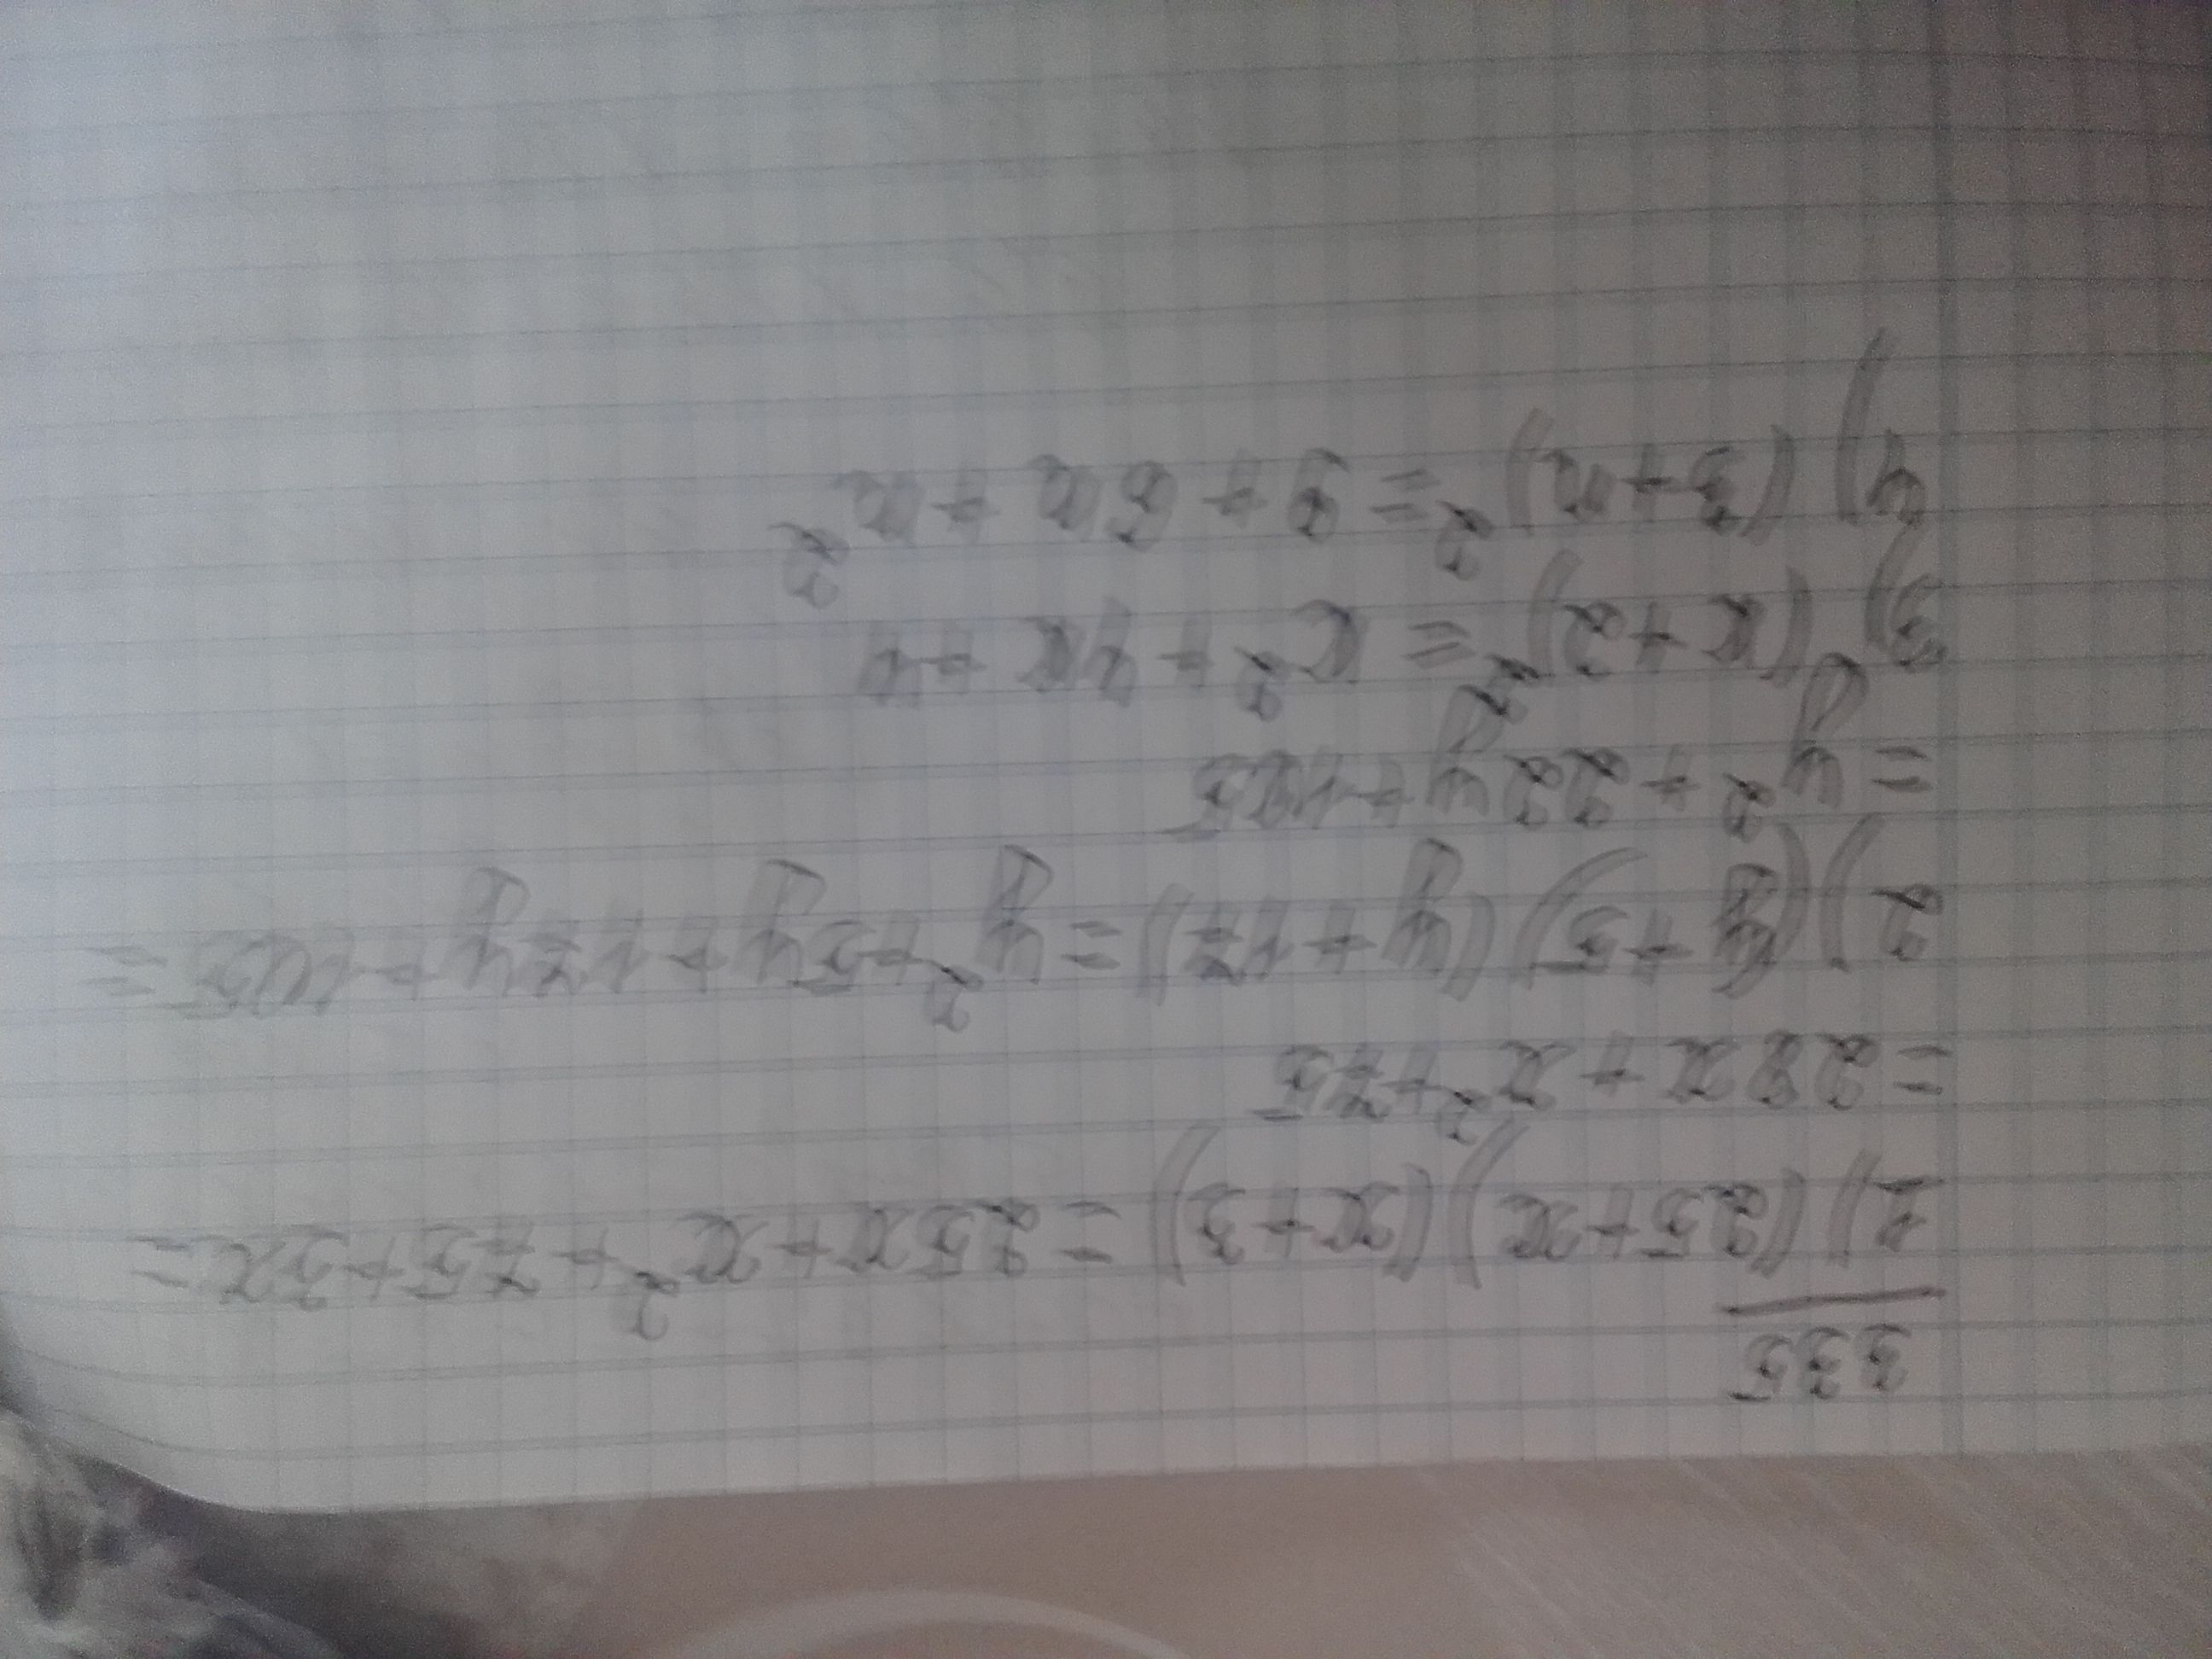 335
1) (25+x)(x+3)=25x+x²+75+3x=
=28x+x²+75
2) (y+5)(y+17)=y²+5y+17y+ =
=y²+22y+
3) (k+2)²=k²+4k+4
4) (3+n)²=9+6n+n²